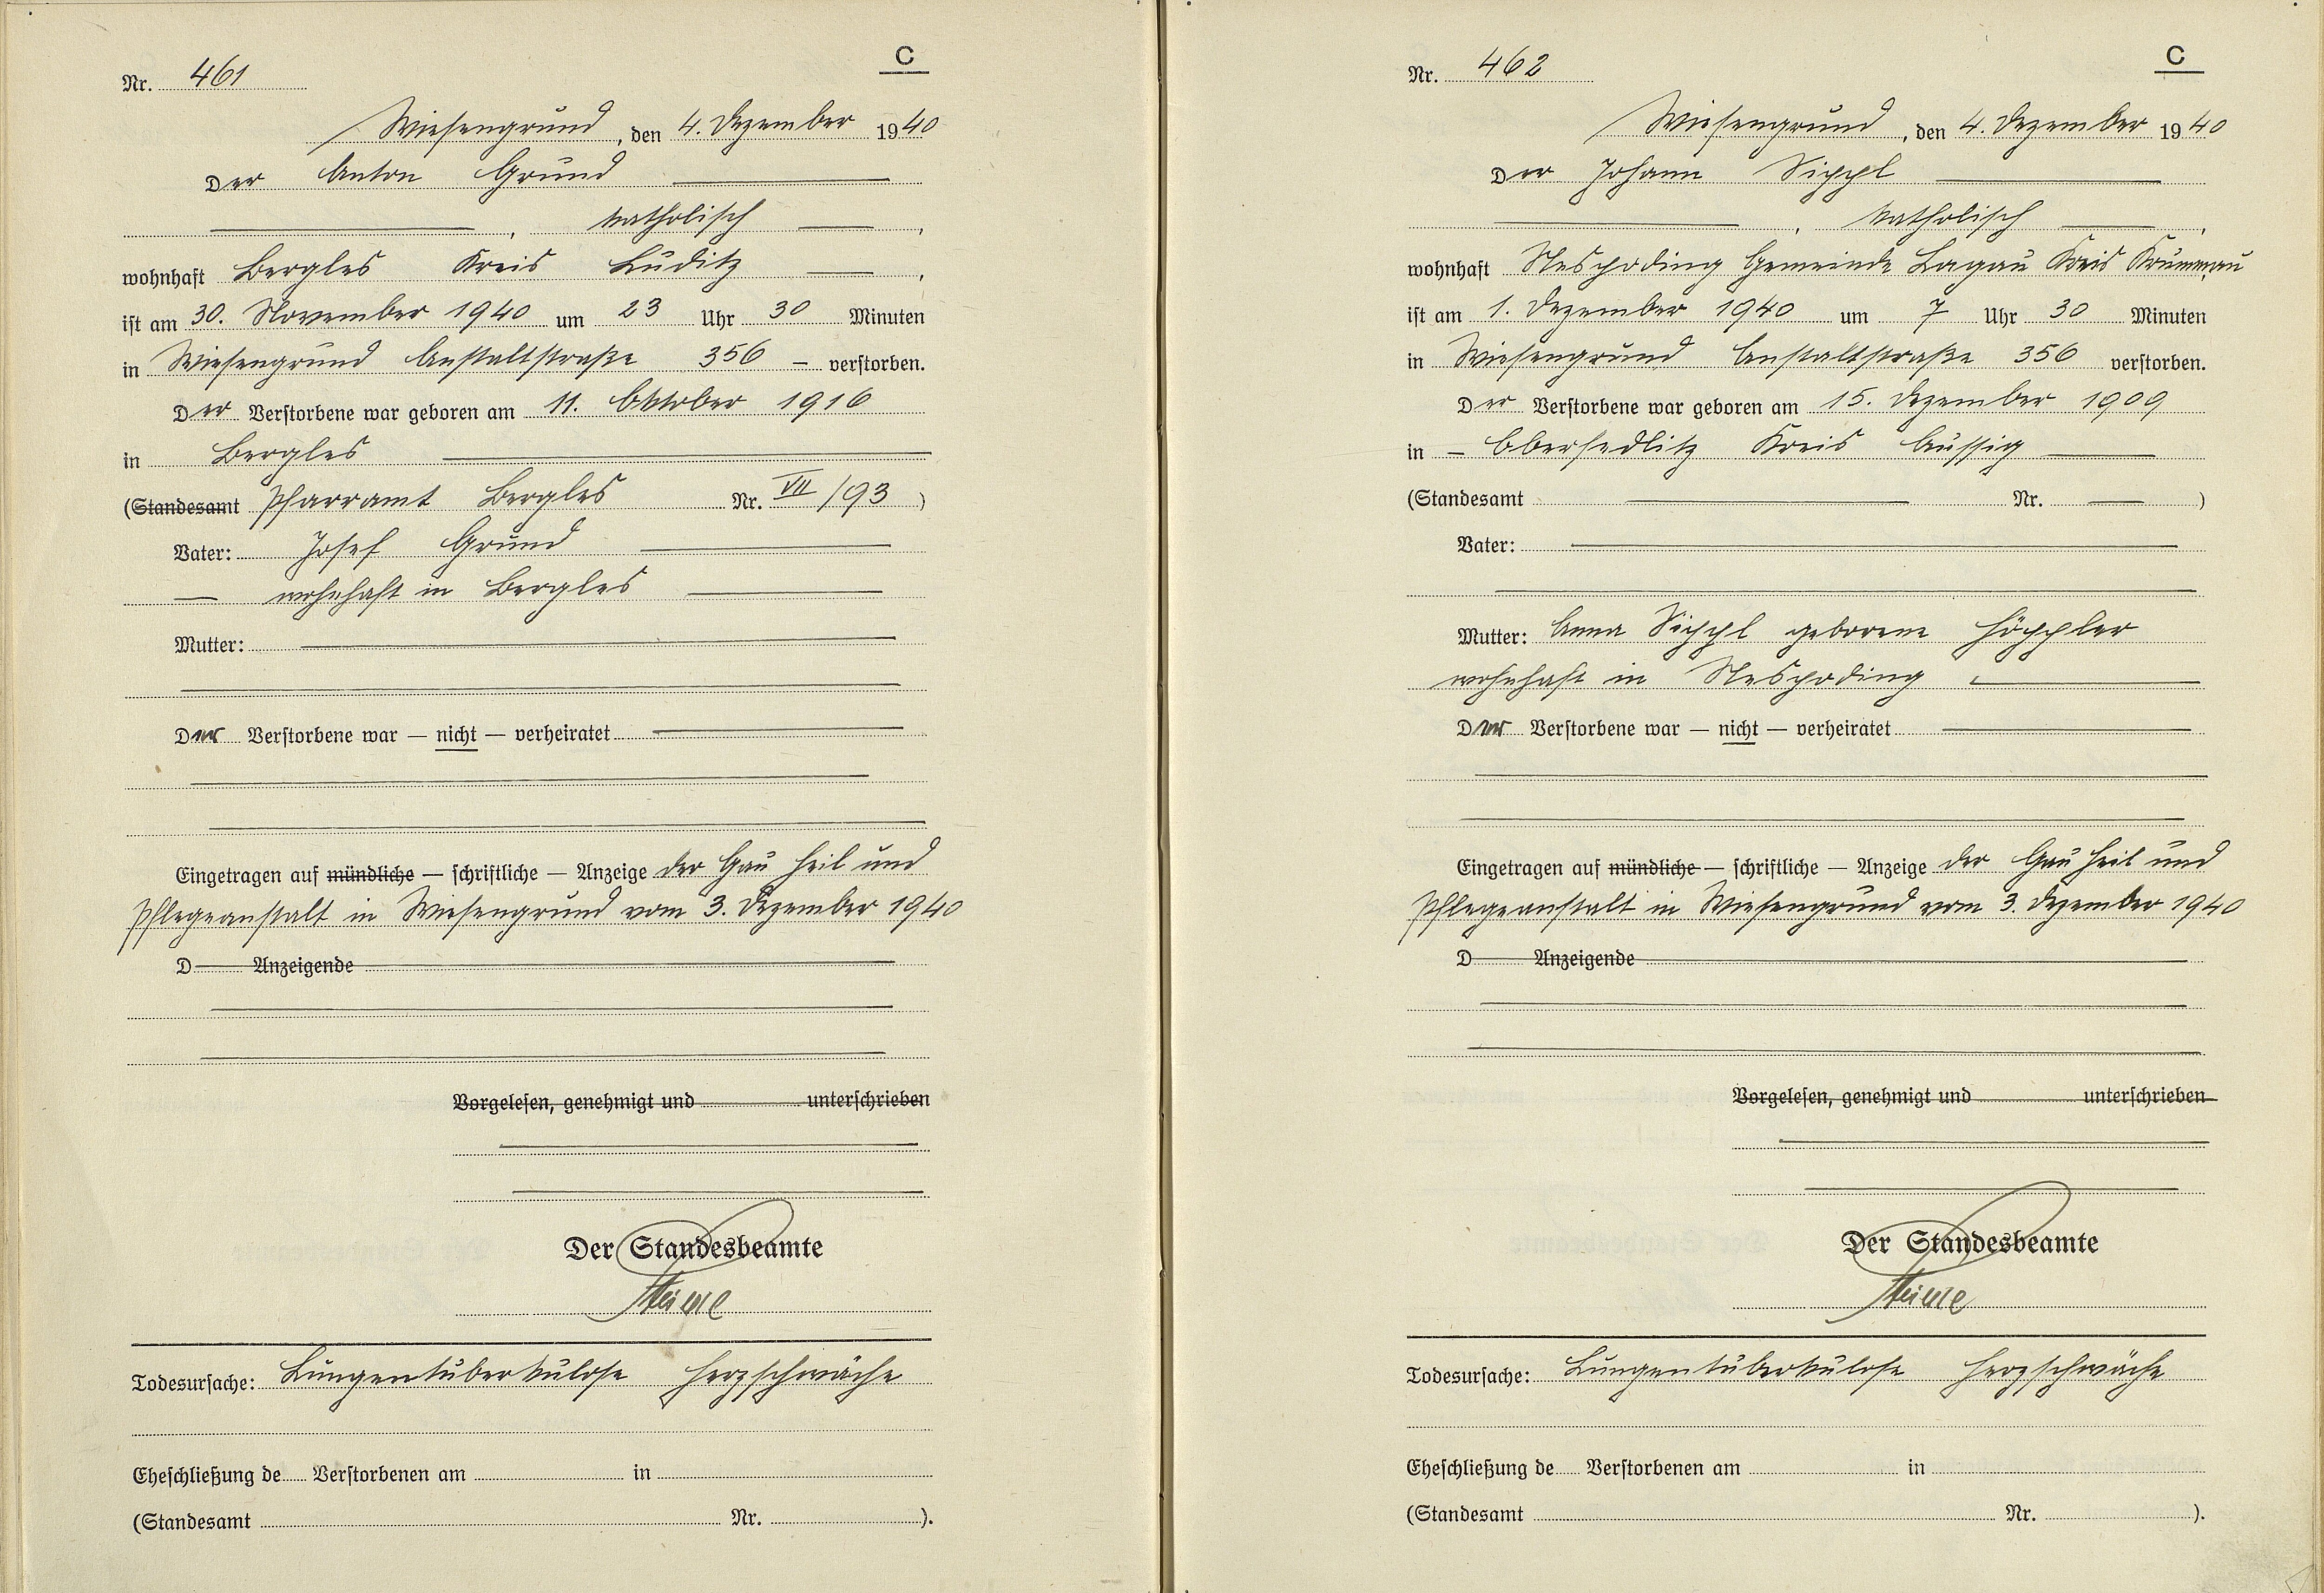 C
Nr. 461
Wiesengrund, den 4. Dezember 1940
Der Anton Grund
, katholisch ,
wohnhaft Bergles Kreis Luditz ,
ist am 30. November 1940 um 23 Uhr 30 Minuten
in Wiesengrund Anstaltstraße 356 – verstorben.
Der Verstorbene war geboren am 11. Oktober 1916
in Bergles
(Standesamt Pfarramt Bergles Nr. VII/93 )
Vater: Josef Grund
— wohnhaft in Bergles
Mutter:
Der Verstorbene war — nicht — verheiratet
Eingetragen auf mündliche — schriftliche — Anzeige der Gau Heil und
Pflegeanstalt in Wiesengrund vom 3. Dezember 1940
D Anzeigende
Vorgelesen, genehmigt und unterschrieben
Der Standesbeamte
Todesursache: Lungentuberkulose Herzschwäche
Eheschließung de Verstorbenen am in
(Standesamt Nr. ).
C
Nr. 462
Wiesengrund, den 4. Dezember 1940
Der Johann Sippl
, katholisch ,
wohnhaft Nespoding Gemeinde Lagau Kreis Krummau
ist am 1. Dezember 1940 um 7 Uhr 30 Minuten
in Wiesengrund Anstaltstraße 356 verstorben.
Der Verstorbene war geboren am 15. Dezember 1909
in – Obersedlitz Kreis Aussig
(Standesamt Nr. )
Vater:
Mutter: Anna Sippl geborene Höppler
wohnhaft in Nespoding
Der Verstorbene war — nicht — verheiratet
Eingetragen auf mündliche — schriftliche — Anzeige der Gau Heil und
Pflegeanstalt in Wiesengrund vom 3. Dezember 1940
D Anzeigende
Vorgelesen, genehmigt und unterschrieben
Der Standesbeamte
Todesursache: Lungentuberkulose Herzschwäche
Eheschließung de Verstorbenen am in
(Standesamt Nr. ).